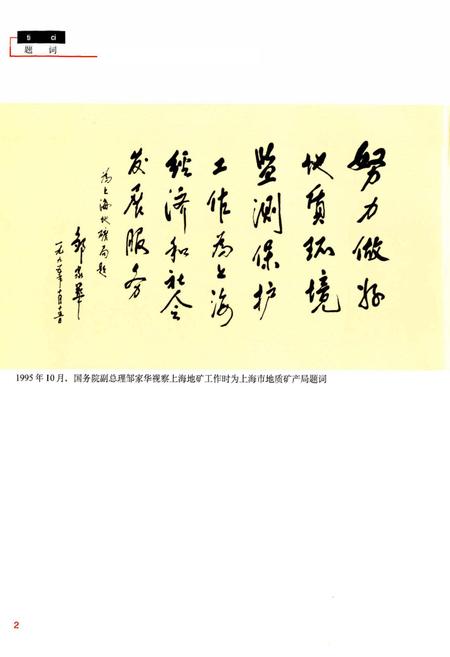 ti ci
题 词
努力做好
地质环境
监测保护
工作为上海
经济和社会
发展服务
为上海地矿局题
邹家华
一九九五年十月十五日
1995 年 10 月，国务院副总理邹家华视察上海地矿工作时为上海市地质矿产局题词
2